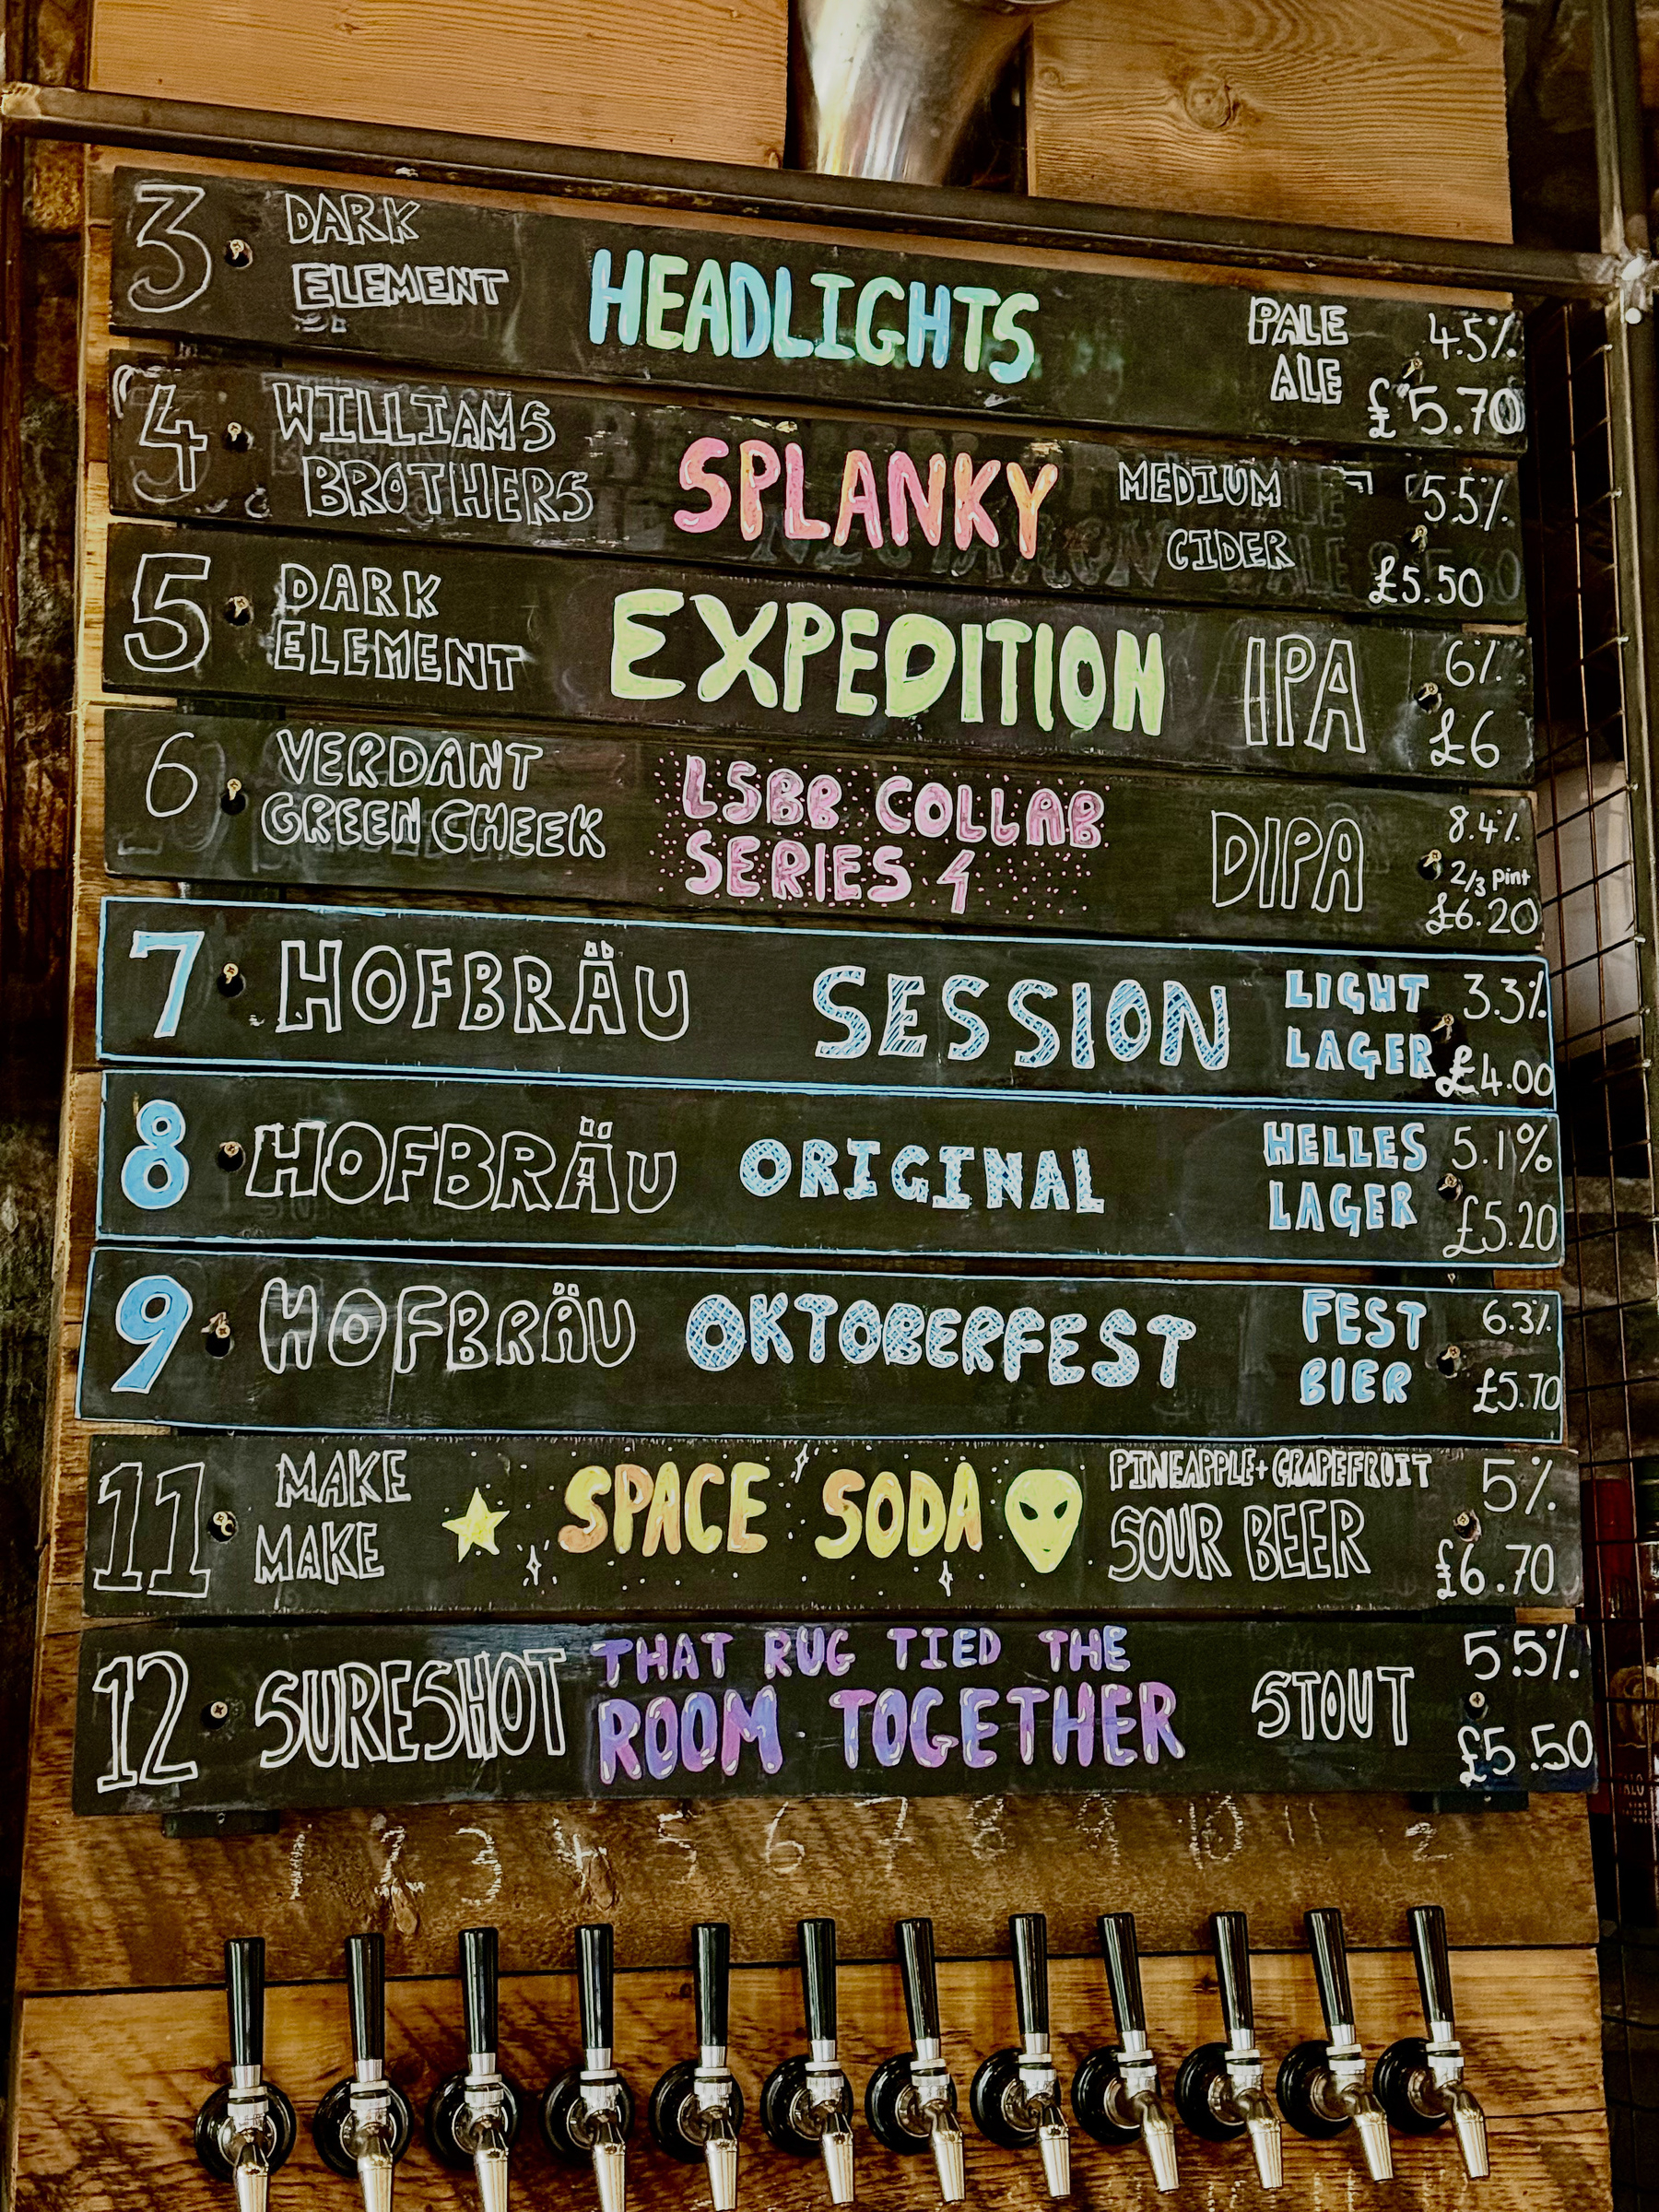 3 DARK ELEMENT HEADLIGHTS PALE ALE 4.5% £5.70
4 WILLIAMS BROTHERS SPLANKY MEDIUM CIDER 5.5% £5.50
5 DARK ELEMENT EXPEDITION IPA 6% £6
6 VERDANT GREEN CHEEK LSBB COLLAB SERIES 4 DIPA 8.4% 2/3 pint £6.20
7 HOFBRÄU SESSION LIGHT LAGER 3.3% £4.00
8 HOFBRÄU ORIGINAL HELLES LAGER 5.1% £5.20
9 HOFBRÄU OKTOBERFEST FEST BIER 6.3% £5.70
11 MAKE MAKE SPACE SODA PINEAPPLE + GRAPEFRUIT SOUR BEER 5% £6.70
12 SURESHOT THAT RUG TIED THE ROOM TOGETHER STOUT 5.5% £5.50
1 2 3 4 5 6 7 8 9 10 11 2